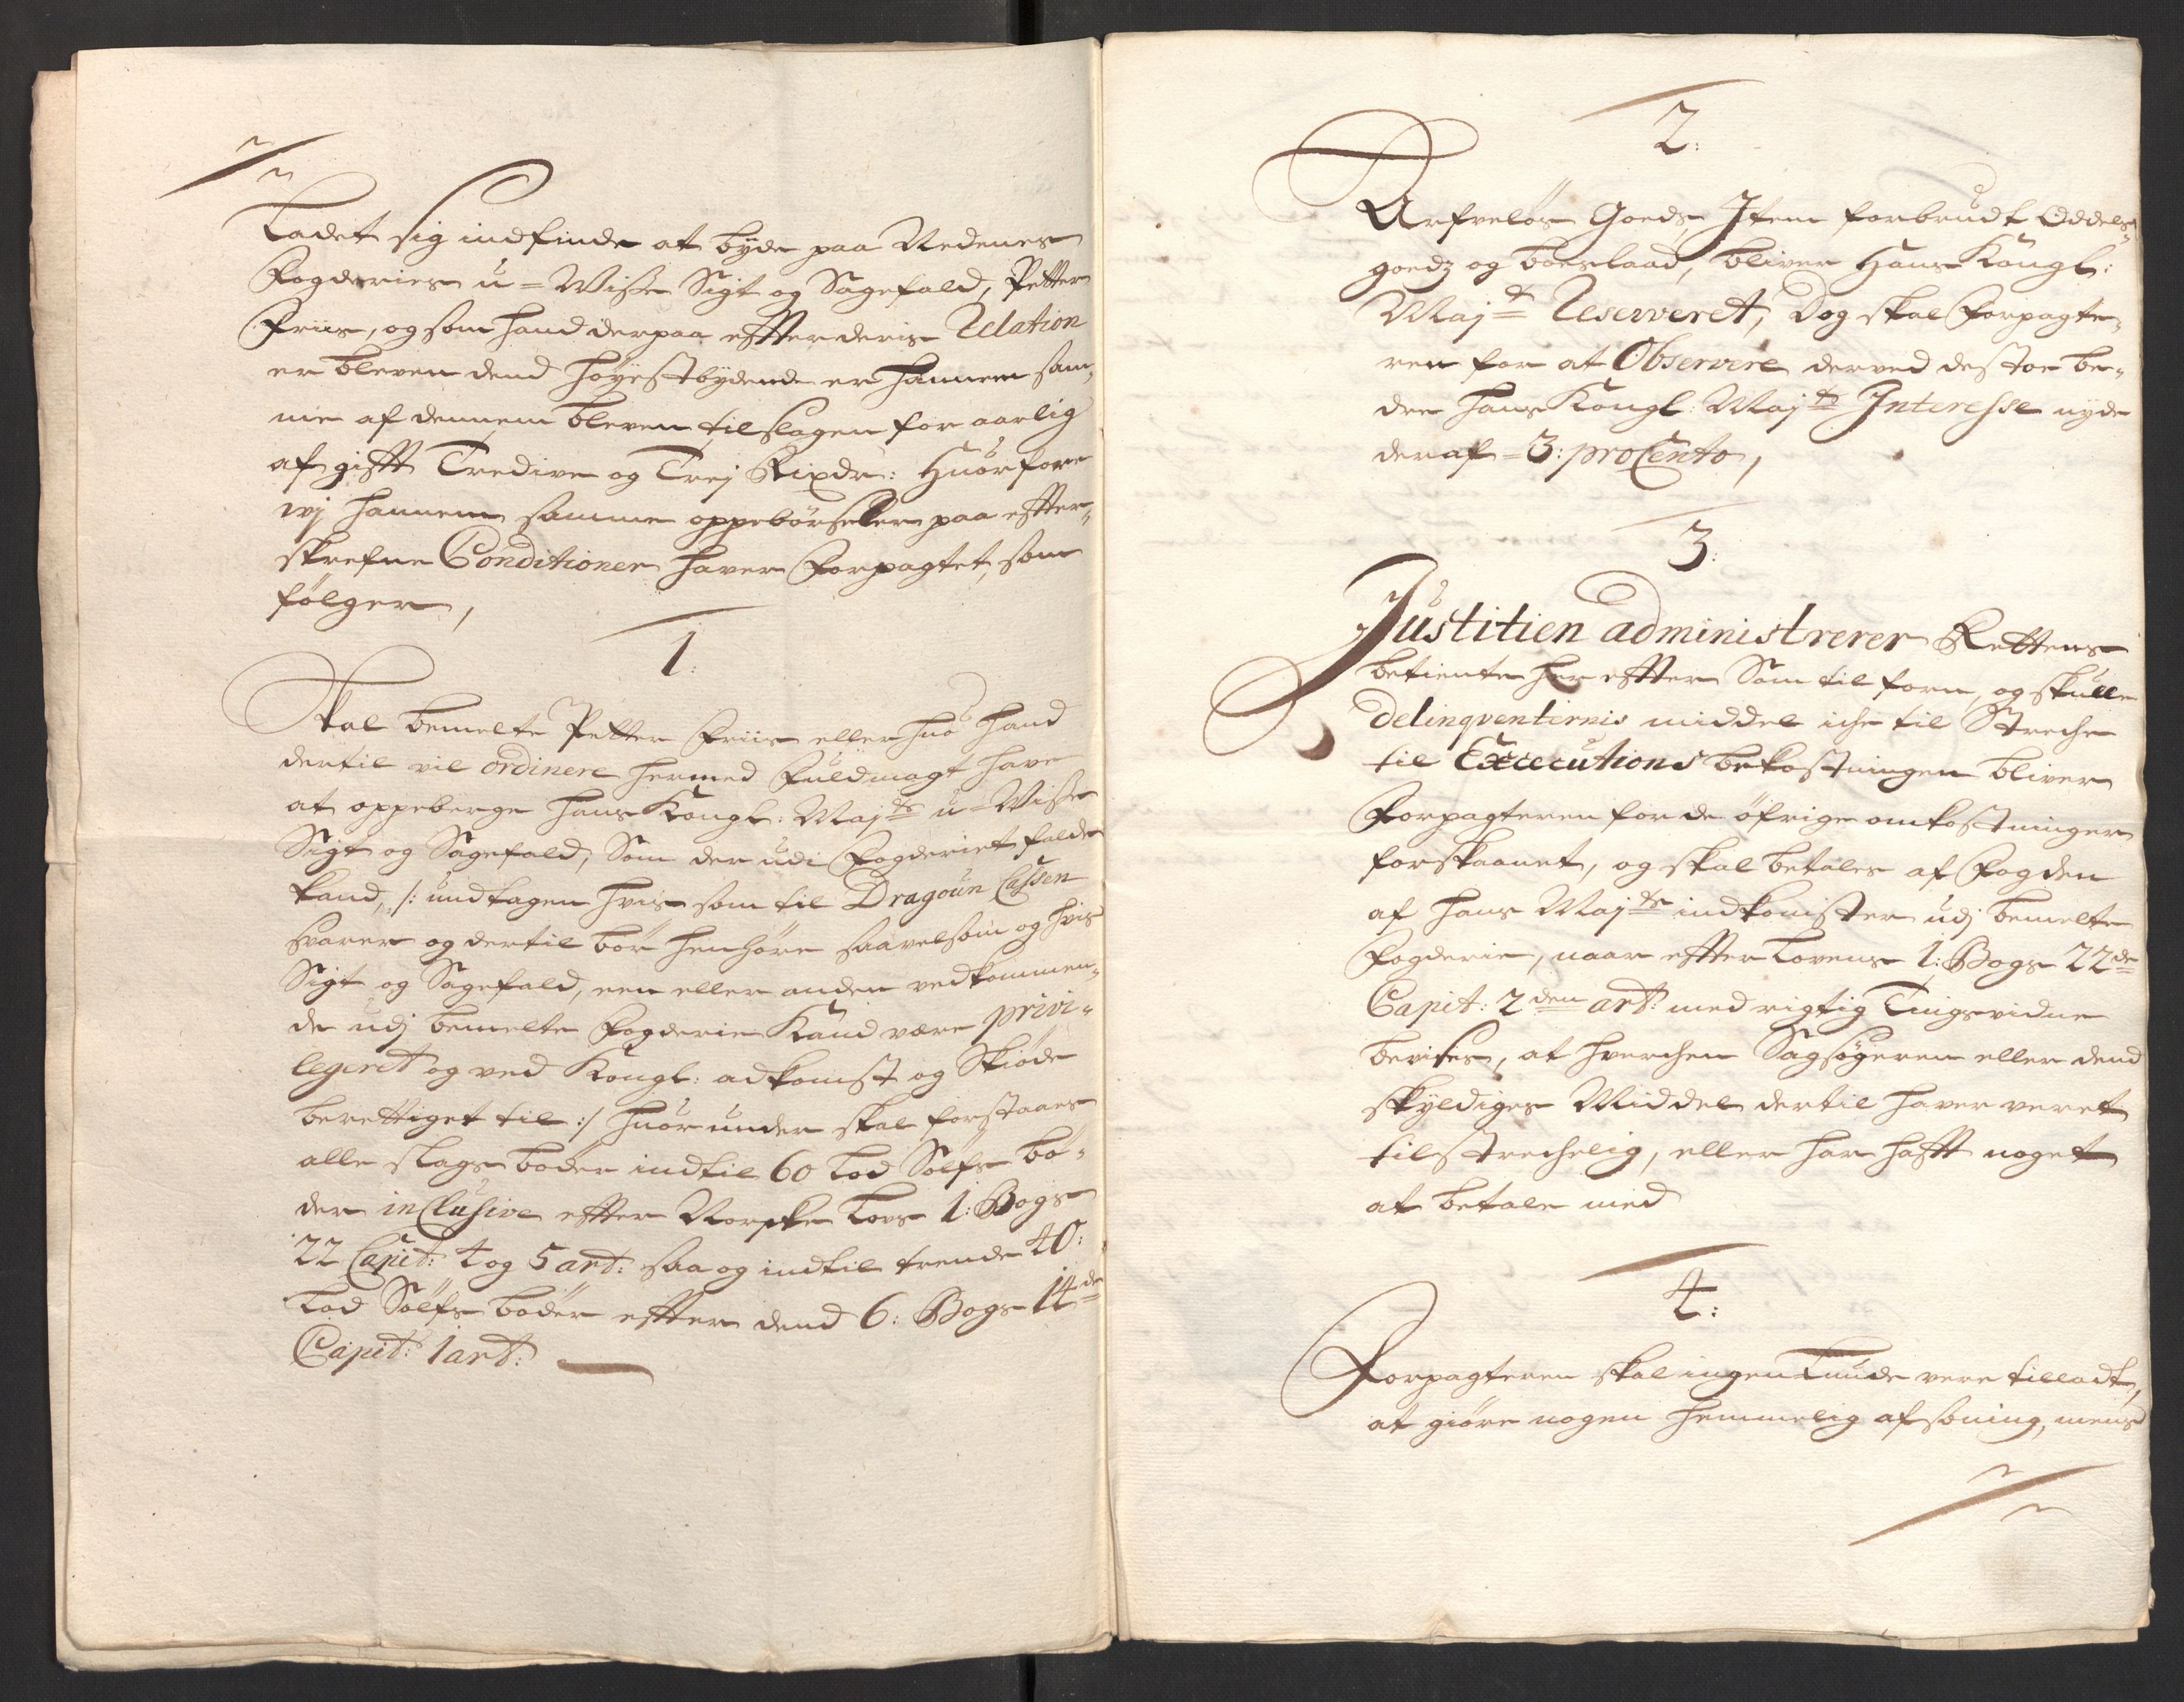 Ladet sig indfinde at byde paa Nedenes
Fogderies u=Wisse Sigt og Sagefald, Petter
Friis, og som hand derpaa effter deris Relation
er bleven dend høyestbydende er hannem sam„
me af dennem bleven tilslagen for aarlig
af gifft Tredive og Trej Rixdr: Huorfore
wj hannem samme oppebørseler paa effter„
skrefne Conditioner haver Forpagtet, som
følger,
1:
Skal bemelte Petter Friis eller huo hand
dertil vil ordinere hermed Fuldmagt have
at oppeberge hans Kongl: Maj:ts u=Wisse
Sigt og Sagefald, Som der udi Fogderiet falde
kand, /: undtagen hvis som til Dragoun Cassen
svarer og dertil bør henhøre saavelsom og hvis
Sigt og Sagefald, een eller anden vedkommen„
de udj bemelte Fogderie Kand være privi„
legeret og ved Kongl: adkomst og Skiøde
berettiget til :/ huorunder skal forstaaes
alle slags bøder indtil 60 Lod Sølfs bø„
der inclusive effter Norske Lovs 1: Bogs
22 Capit: 4 og 5 art: saa og indtil trende 40:
Lod Sølfs bøder effter dend 6: Bogs 14de
Capit: 1 art:
2:
Arfveløs Goeds, Item forbrudt Oddels„
goedz og boeslaad, bliver Hans Kongl:
Maj:t Reserveret, Dog skal Forpagte„
ren for at Observere derved destoe be„
dre hans Kongl: Maj:ts Interesse nyde
deraf = 3: pro Cento,
3:
Justitien administrerer Rettens
betiente her effter Som til forn, og skulle
delinqventernis middel iche til Streche
til Executions bekostningen bliver
Forpagteren for de øfrige omkostninger
forskaanet, og skal betales af Fogden
af hans Maj:ts indkomster udj bemelte
Fogderie, naar effter Lovens 1: Bogs 22de
Capit: 2den art: med rigtig Tingsvidne
bevises, at hverchen Sagsøgeren eller dend
skyldiges Middel dertil haver veret
tilstrechelig, eller har hafft noget
at betale med
4:
Forpagteren skal ingenlunde vere tilladt,
at giøre nogen hemmelig afsoning, mens